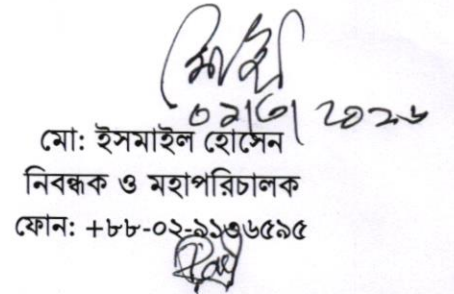 মো: ইসমাইল হোসেন
নিবন্ধক ও মহাপরিচালক
ফোন: +৮৮-০২-৯১৩৬৫৯৫